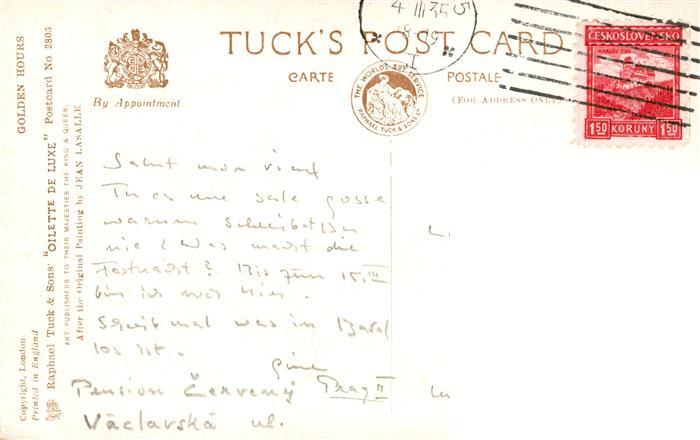 TUCK'S POST CARD
CARTE POSTALE
(FOR ADDRESS ONLY)
By Appointment
THE WORLD'S ART SERVICE
RAPHAEL TUCK & SONS LTD
4 III 35
ČESKOSLOVENSKO
1·50 KORUNY 1·50
GOLDEN HOURS
Raphael Tuck & Sons' "OILETTE DE LUXE" Postcard No 3803
ART PUBLISHERS TO THEIR MAJESTIES THE KING & QUEEN.
After the Original Painting by JEAN LASALLE
Copyright, London
Printed in England
Salut mon vieux
Tu es une sale gosse
warum schreibst Du
nie? Was macht die
Fastnacht? Bis zum 15. III
bin ich noch hier.
Schreib mal was in Basel
los ist.
Pension Červený Prag II
Václavská ul.